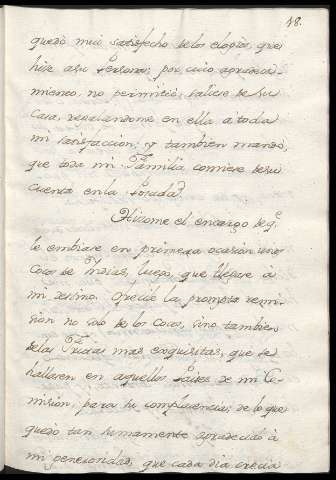 18.
quedò mui satisfecho de los elogios, que
hise a su Persona; por cuio agradeci-
miento, no permitiò, saliese de su
Casa, regalandome en ella a toda
mi satisfaccion; y tambien mandò,
que toda mi Familia comiese de su
cuenta en la Posada.
Hizome el encargo de q.e
le embiase en primera ocasion unos
Cocos de Indias, luego, que llegase à
mi destino. Ofrecile la prompta remi-
sion no solo de los Cocos, sino tambien
de las Frutas mas exquisitas, que se
hallasen en aquellos Paises de mi Co-
mision, para su complacencia; de lo que
quedò tan sumamente agradecido à
mi generosidad, que cada dia crecia